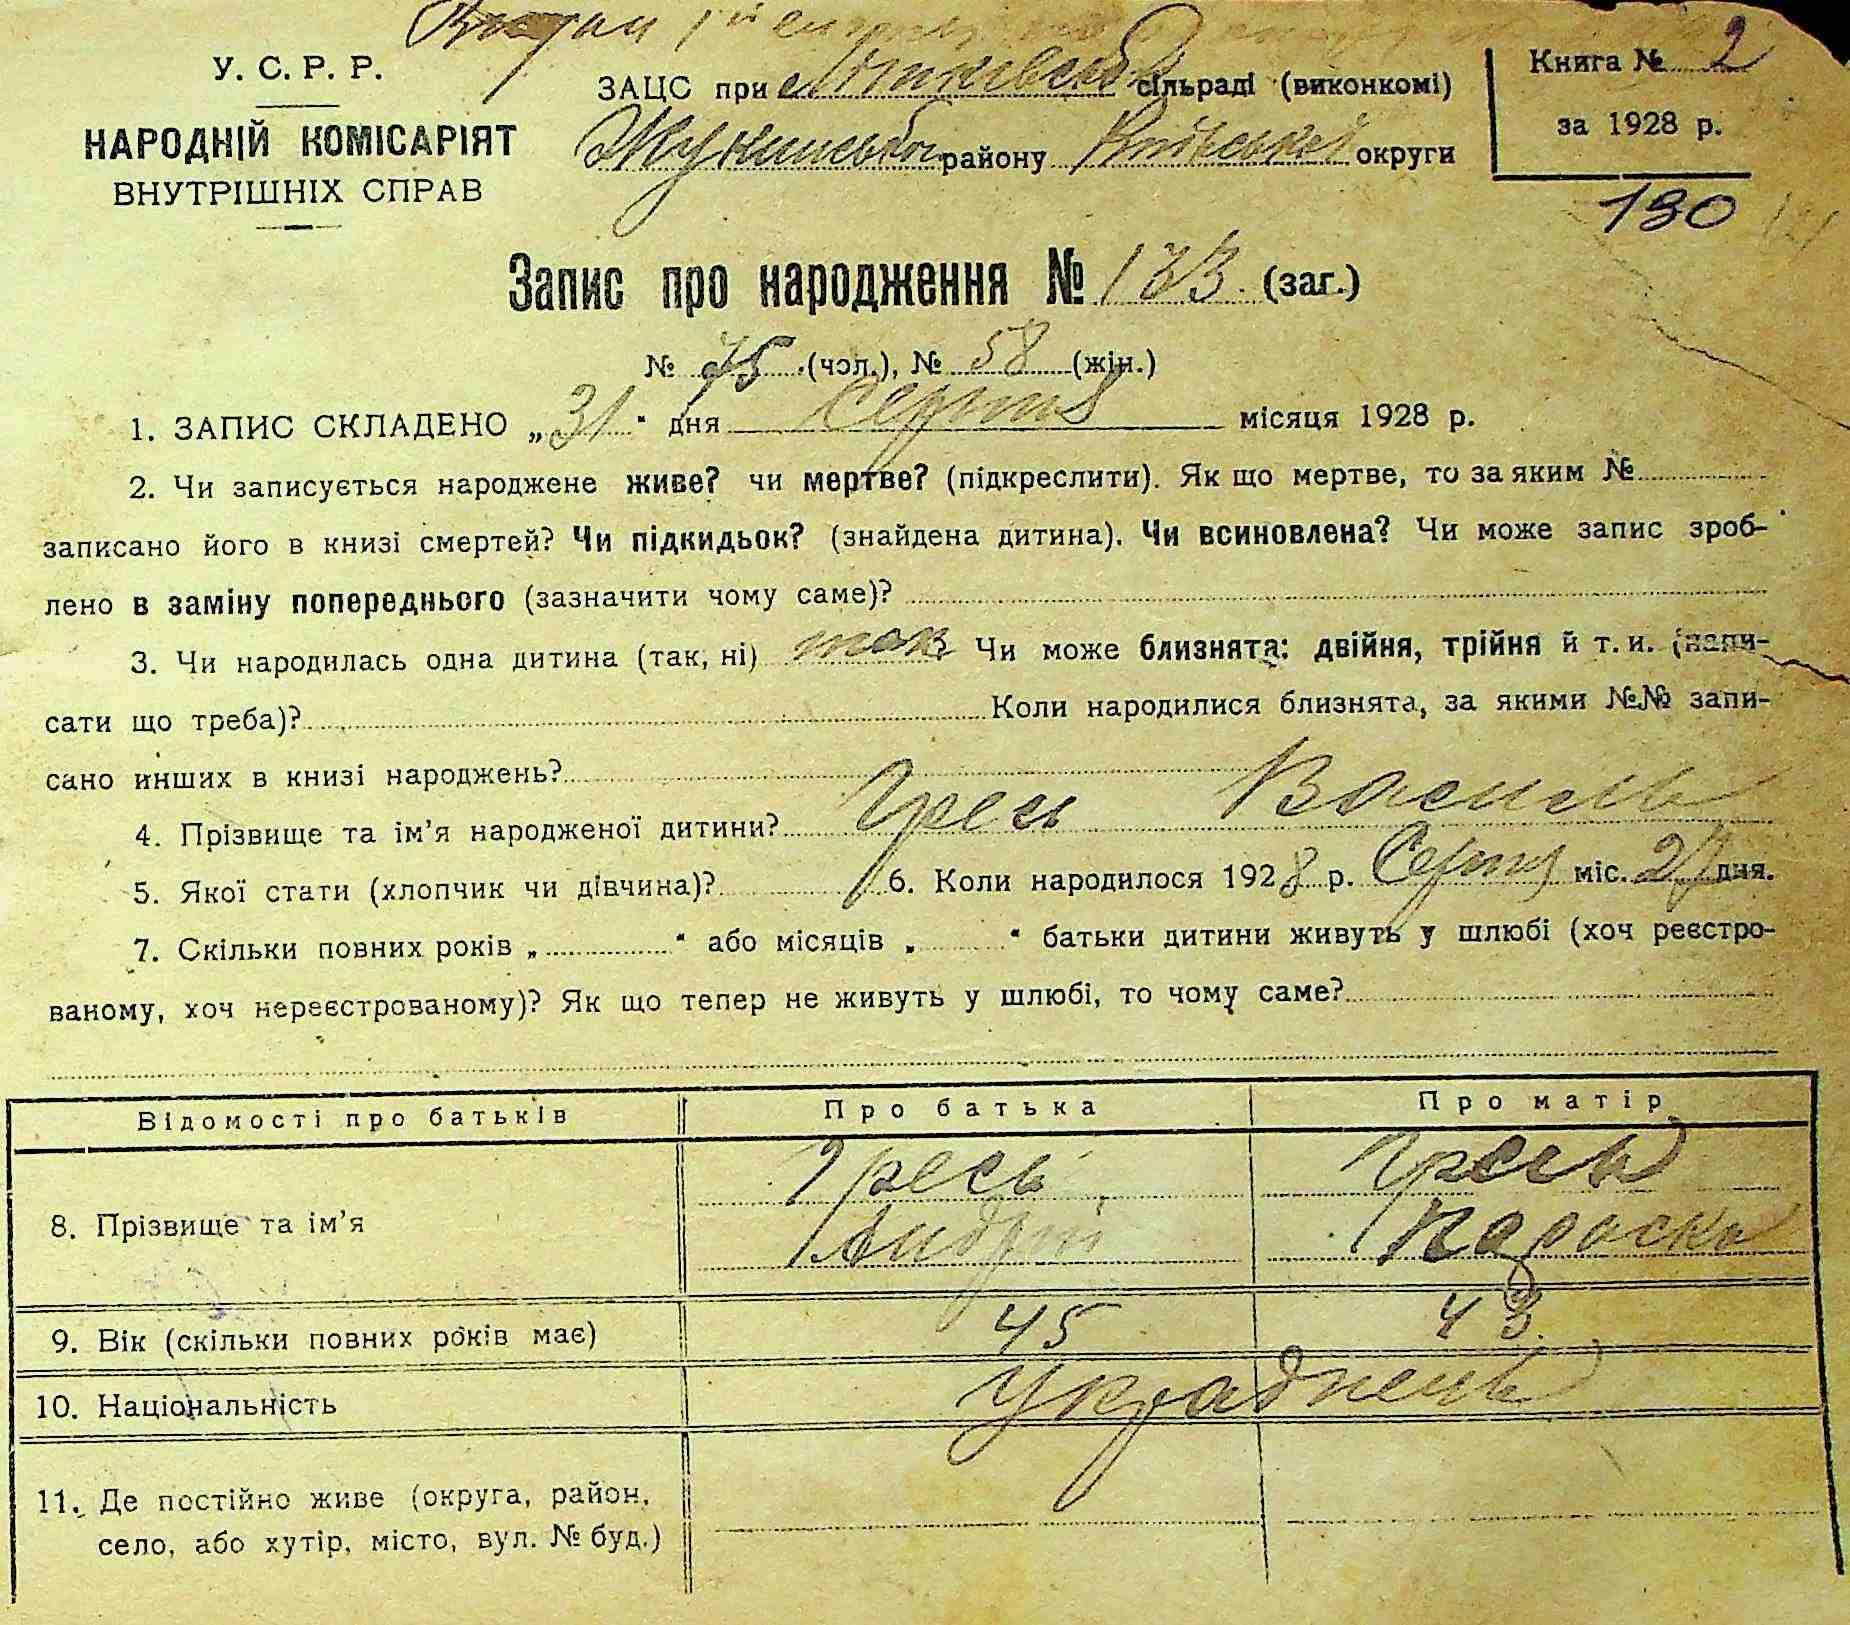 У. С. Р. Р.
НАРОДНІЙ КОМІСАРІЯТ
ВНУТРІШНІХ СПРАВ
ЗАЦС при сільраді (виконкомі)
району Київської округи
Книга № 2
за 1928 р.
130
Запис про народження № 133 (заг.)
№ 75 (чол.), № 58 (жін.)
1. ЗАПИС СКЛАДЕНО „31" дня серпня місяця 1928 р.
2. Чи записується народжене живе? чи мертве? (підкреслити). Як що мертве, то за яким №
записано його в книзі смертей? Чи підкидьок? (знайдена дитина). Чи всиновлена? Чи може запис зроб-
лено в заміну попереднього (зазначити чому саме)?
3. Чи народилась одна дитина (так, ні) так Чи може близнята: двійня, трійня й т. и. (напи-
сати що треба)? Коли народилися близнята, за якими №№ запи-
сано инших в книзі народжень?
4. Прізвище та ім'я народженої дитини? Гресь Василь
5. Якої стати (хлопчик чи дівчина)? 6. Коли народилося 1928 р. Серпня міс. 27 дня.
7. Скільки повних років „ " або місяців „ " батьки дитини живуть у шлюбі (хоч реєстро-
ваному, хоч нереєстрованому)? Як що тепер не живуть у шлюбі, то чому саме?
Відомості про батьків Про батька Про матір
8. Прізвище та ім'я Гресь Андрій Гресь Параска
9. Вік (скільки повних років має) 45 43
10. Національність Українець
11. Де постійно живе (округа, район,
село, або хутір, місто, вул. № буд.)